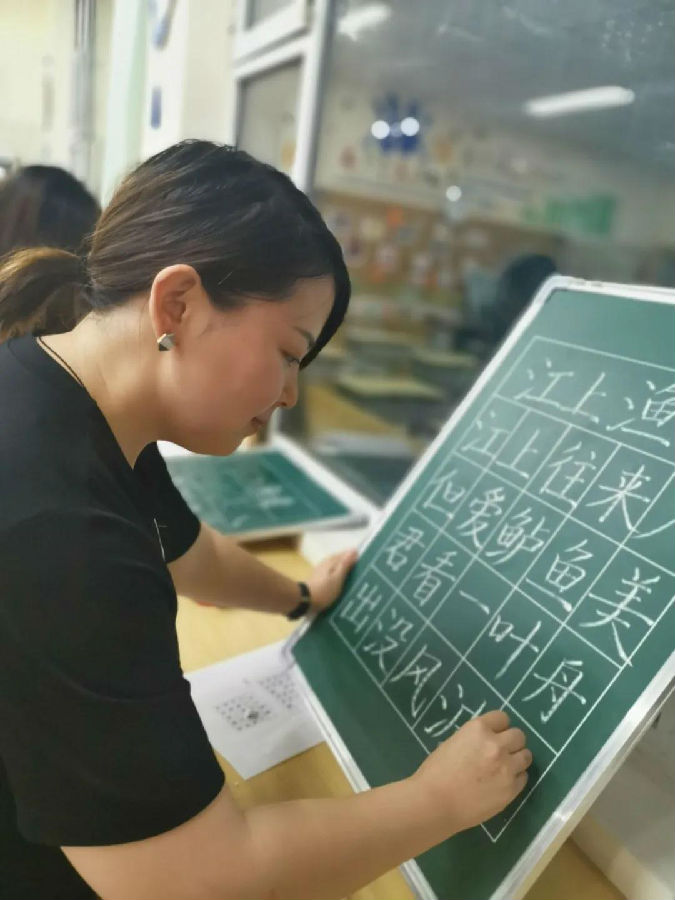 江上渔
江上往来
但爱鲈鱼美
君看一叶舟
出没风